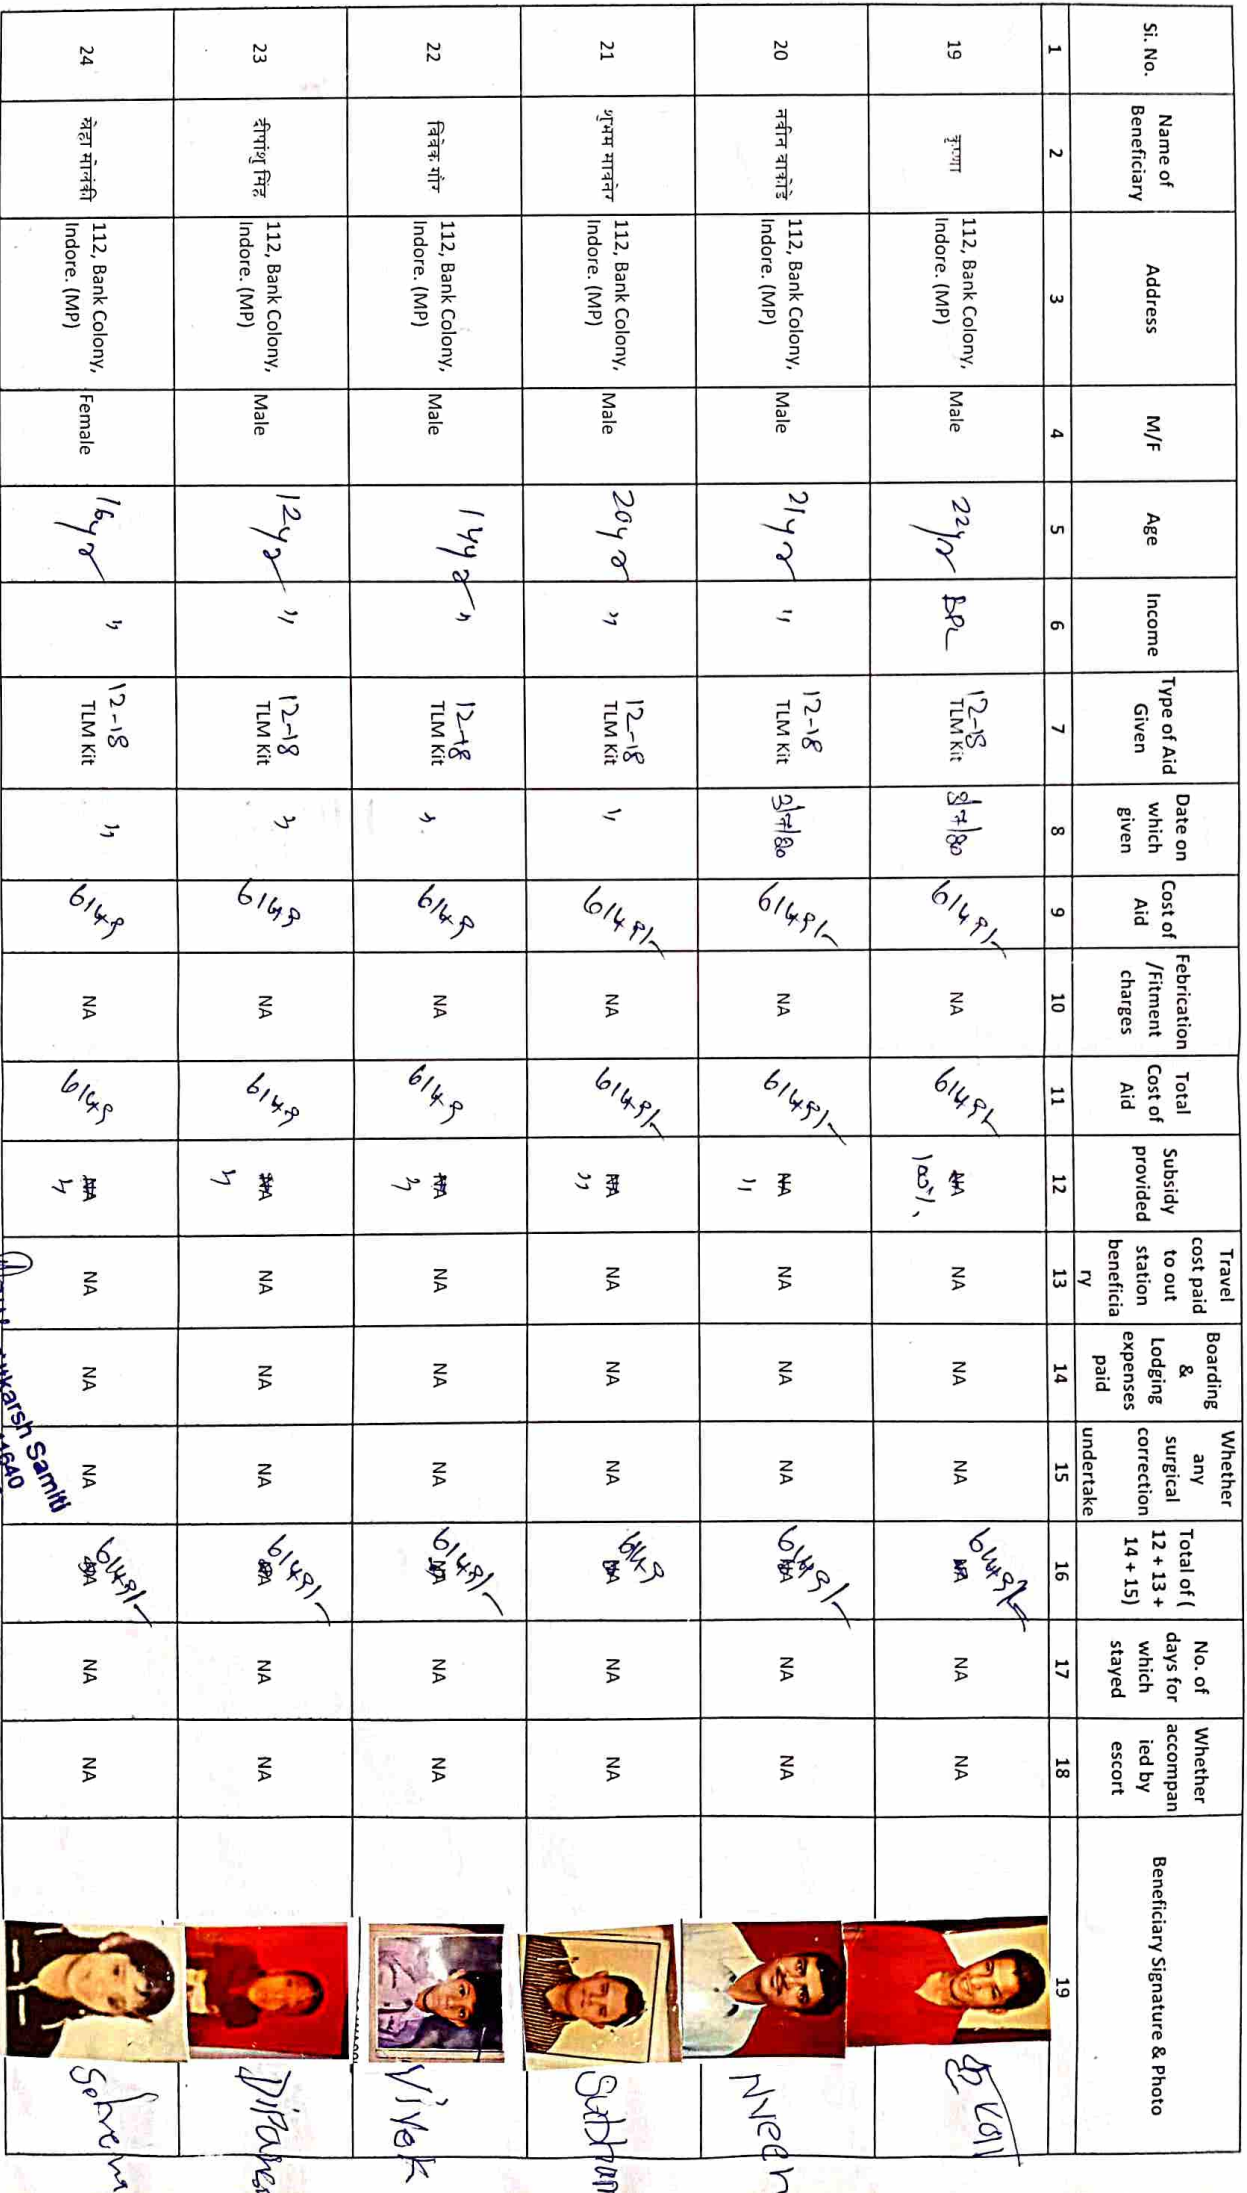 Si. No. Name of Beneficiary Address M/F Age Income Type of Aid Given Date on which given Cost of Aid Febrication /Fitment charges Total Cost of Aid Subsidy provided Travel cost paid to out station beneficia ry Boarding & Lodging expenses paid Whether any surgical correction undertake Total of ( 12 + 13 + 14 + 15) No. of days for which stayed Whether accompan ied by escort Beneficiary Signature & Photo
1 2 3 4 5 6 7 8 9 10 11 12 13 14 15 16 17 18 19
19 कृष्णा 112, Bank Colony, Indore. (MP) Male 22yr BPL 12-18 TLM Kit 3/7/20 6149/- NA 6149/- NA 100%, NA NA NA NA 6149/- NA NA
20 नवीन वाकोडे 112, Bank Colony, Indore. (MP) Male 21yr " 12-18 TLM Kit 3/7/20 6149/- NA 6149/- NA " NA NA NA NA 6149/- NA NA Nveen
21 शुभम मावनेर 112, Bank Colony, Indore. (MP) Male 20yr " 12-18 TLM Kit " 6149/- NA 6149/- NA " NA NA NA NA 6149 NA NA
22 विवेक गौर 112, Bank Colony, Indore. (MP) Male 14yr " 12-18 TLM Kit " 6149 NA 6149 NA " NA NA NA NA 6149/- NA NA Vivek
23 दीपांशु सिंह 112, Bank Colony, Indore. (MP) Male 12yr " 12-18 TLM Kit " 6149 NA 6149 NA " NA NA NA NA 6149/- NA NA
24 112, Bank Colony, Indore. (MP) Female 16yr " 12-18 TLM Kit " 6149 NA 6149 NA " NA NA NA NA 6149/- NA NA
Samiti